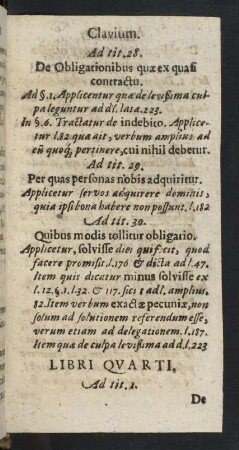 Clavium.
Ad tit. 28.
De Obligationibus quæ ex quasi
contractu.
Ad §.1. Applicentur quæ de levißima cul-
pa leguntur ad d.l. lata. 223.
In §.6. Tractatur de indebito. Applice-
tur l.82 qua ait, verbum amplius ad
eũ quoq́; pertinere, cui nihil debetur.
Ad tit. 29.
Per quas personas nobis adquiritur.
Applicetur servos adquirere dominis,
quia ipsi bona habere non possunt. l.182
Ad tit. 30.
Quibus modis tollitur obligatio.
Applicetur, solvisse dici qui fecit, quod
facere promisit l.176 & dicta ad l.47.
Item quis dicatur minus solvisse ex
l.12.§.1.l.32. & 117. sicut ad l. amplius.
82. Item verbum exactæ pecuniæ, non
solum ad solutionem referendum esse,
verum etiam ad delegationem. l.187.
Item quæ de culpa levißima ad d.l.223
LIBRI QVARTI,
Ad tit. 1.
De